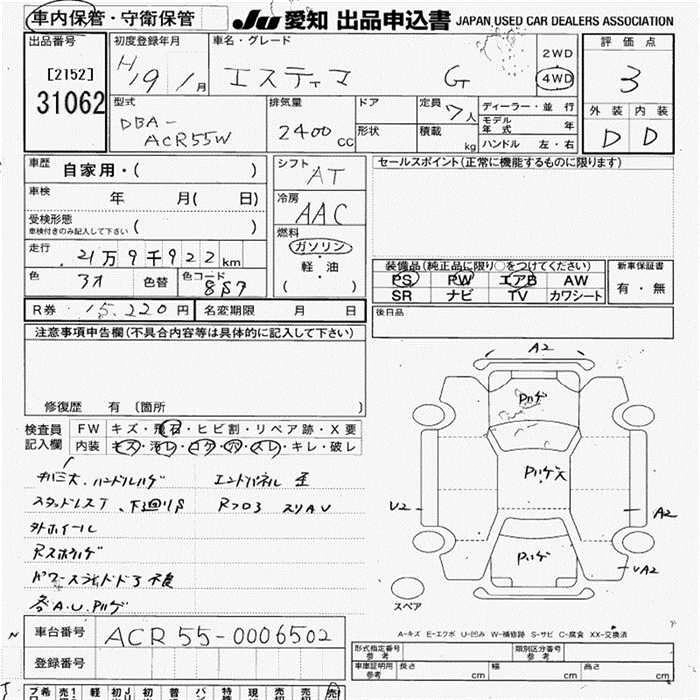 車内保管・守衛保管
JU 愛知 出品申込書 JAPAN USED CAR DEALERS ASSOCIATION
出品番号
[2152]
31062
初度登録年月
H19年1月
車名・グレード
エスティマ G
2WD
4WD
評価点
3
外装 内装
D D
型式
DBA-
ACR55W
排気量
2400 CC
ドア
形状
定員 7人
積載 kg
ディーラー・並行
モデル年式 年
ハンドル 左・右
車歴 自家用・( )
車検 年 月( 日)
受検形態
車検付きのみ記入して下さい ( )
走行 21万9千922km
色 アオ 色替 色コード 8S7
シフト AT
冷房 AAC
燃料
ガソリン
・
軽・油
( )
セールスポイント(正常に機能するものに限ります)
装備品(純正品に限り○をつけてください)
PS PW エアB AW
SR ナビ TV カワシート
新車保証書
有・無
R券 15,220円 名変期限 月 日
後日品
注意事項申告欄(不具合内容等は具体的に記入して下さい)
修復歴 有 〔箇所 〕
検査員記入欄
FW キズ・飛石・ヒビ割・リペア跡・X要
内装 キズ・汚レ・コゲ・穴・スレ・キレ・破レ
キバミ大、ハンドルハゲ
スタッドレスT、下廻りS
Rフロ3 スリAU
外ホイール
パワースライドドア不良
各A.U.Pハゲ
A2
Pハゲ
Pハゲ大
U2
A2
Pハゲ
UA2
スペア
A-キズ E-エクボ U-凹み W-補修跡 S-サビ C-腐食 XX-交換済
車台番号 ACR55-0006502
登録番号
型式指定番号 参考
類別区分番号 参考
車庫証明用 参考 長さ cm 幅 cm 高さ cm